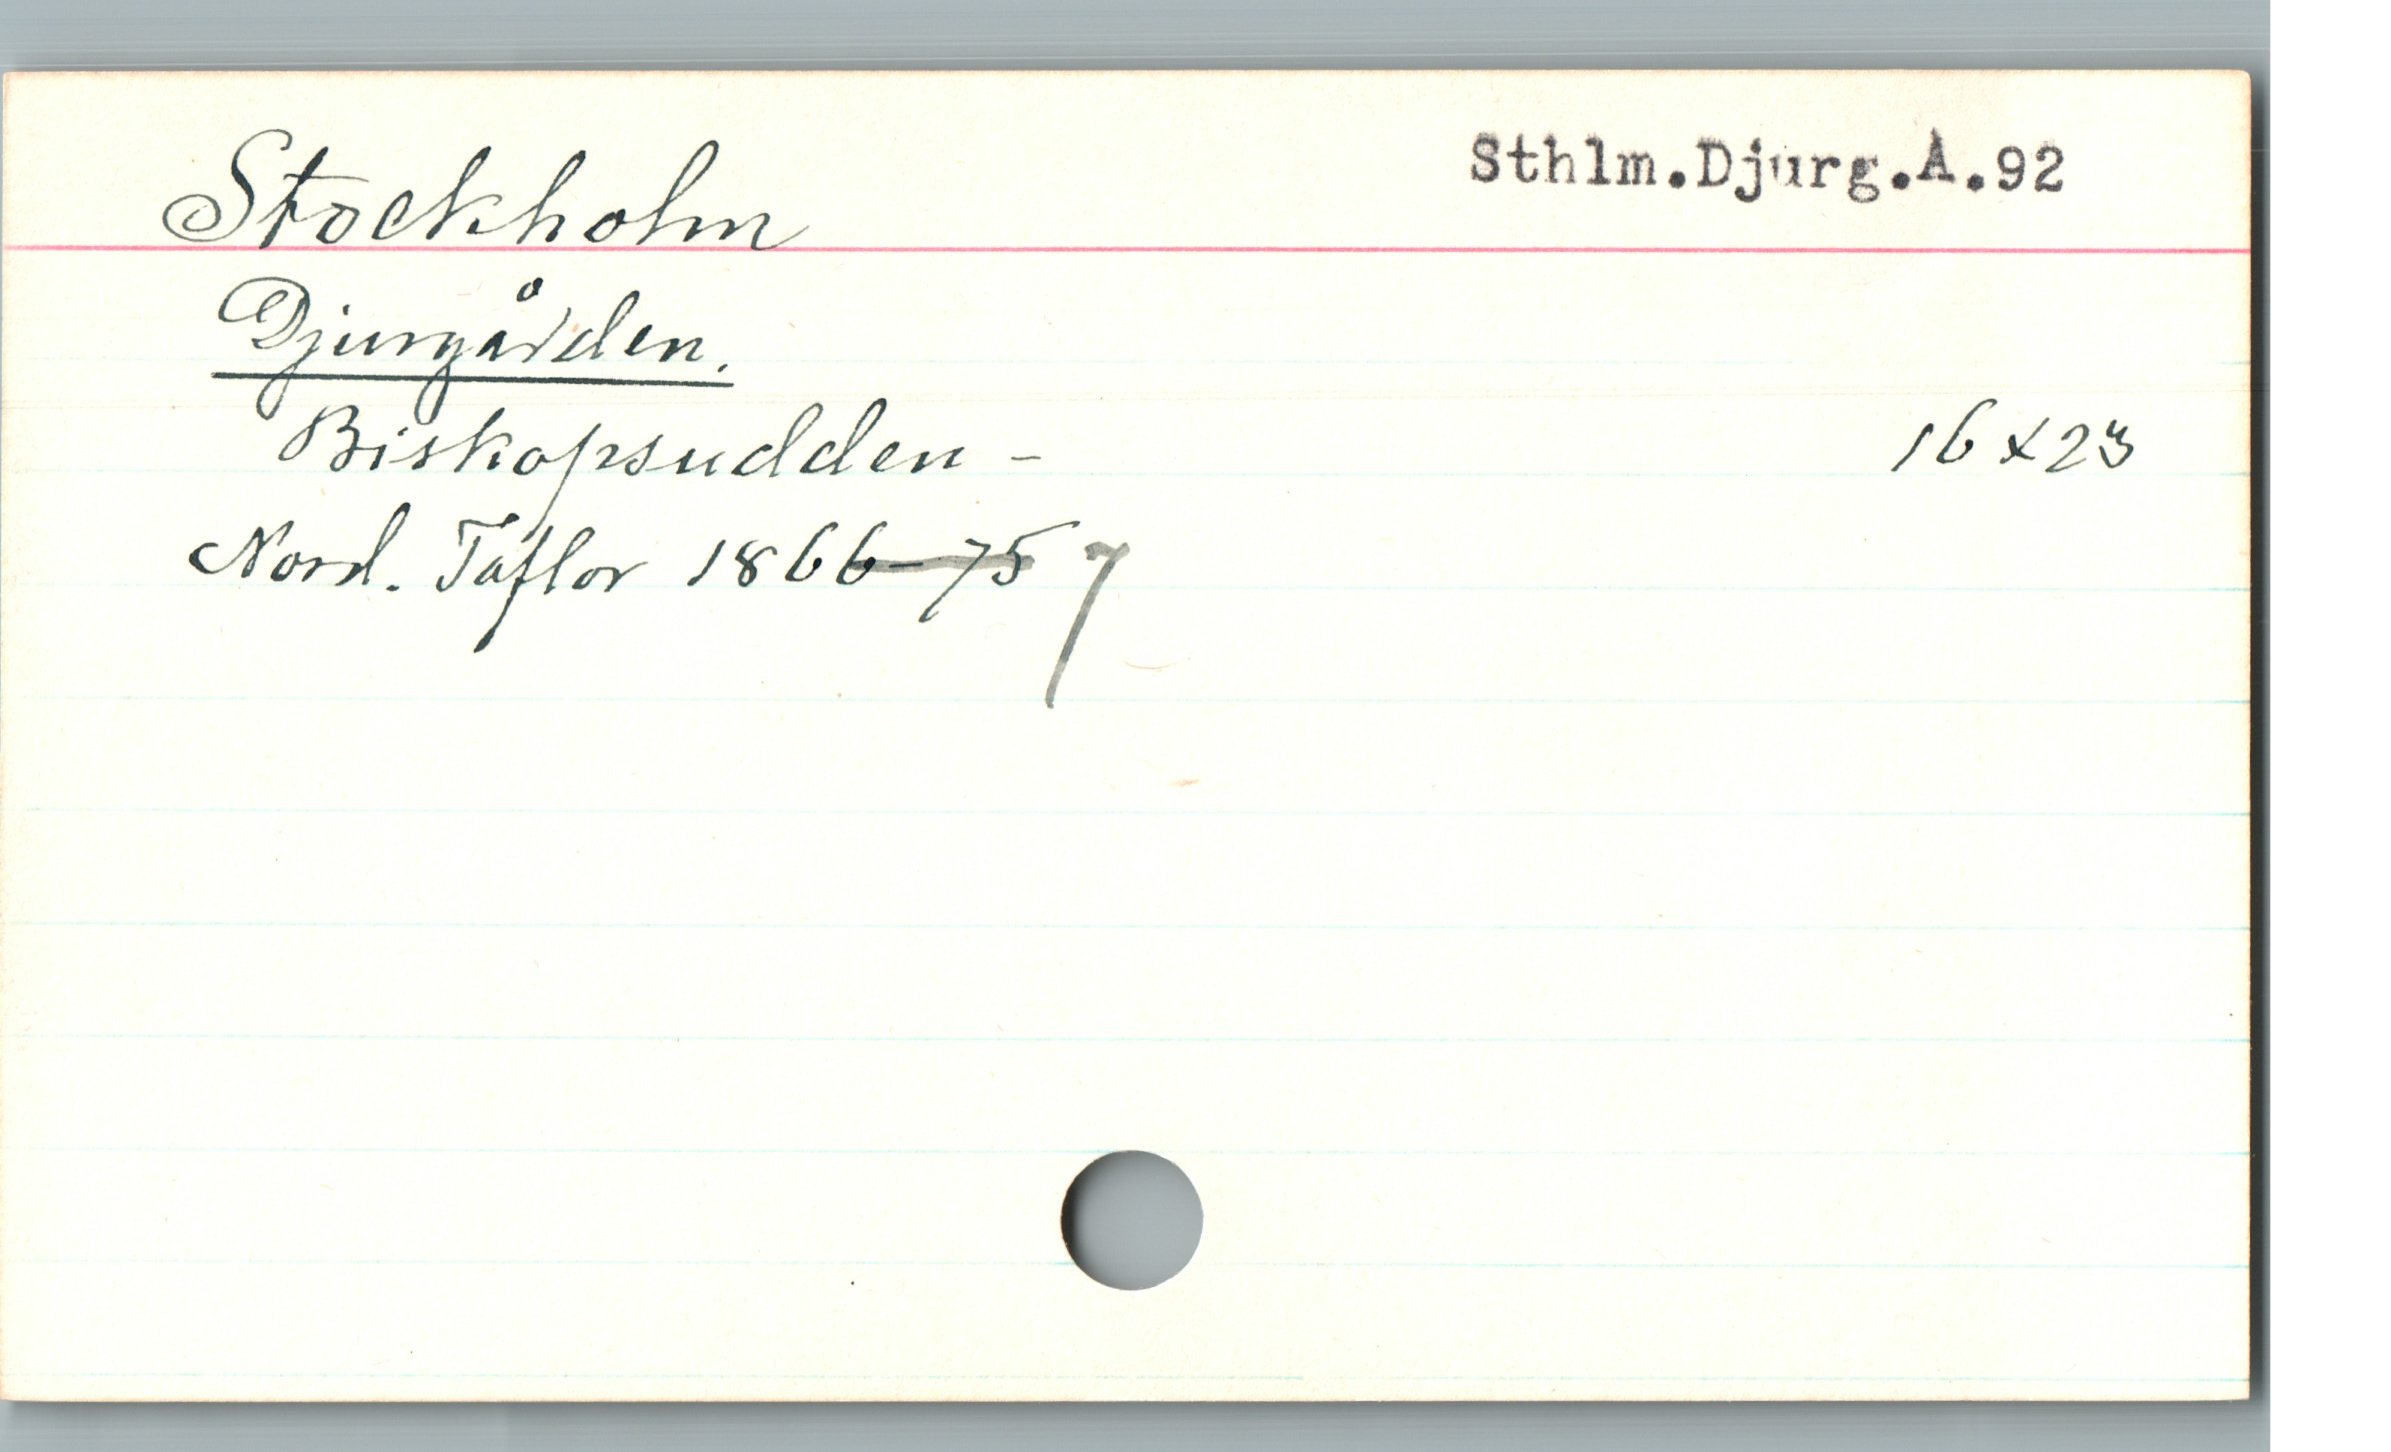 Stockholm Sthlm.Djurg.A.92
Djurgården.
Biskopsudden - 16 x 23
Nord. Taflor 1866-75 7